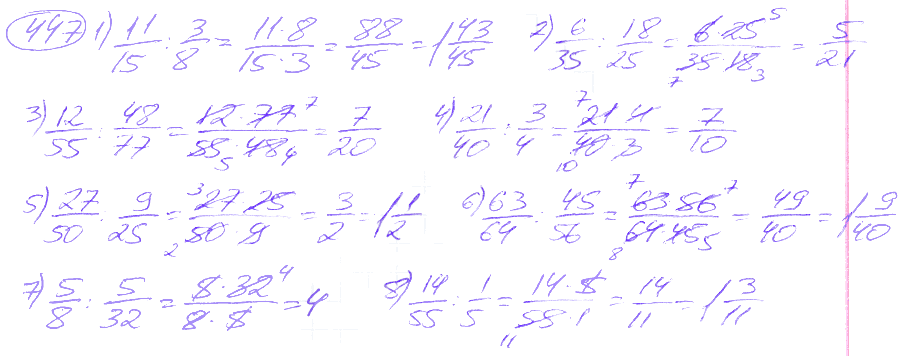 447 1) 11/15 : 3/8 = 11·8/15·3 = 88/45 = 1 43/45 2) 6/35 : 18/25 = 6·25 5/7 35·18 3 = 5/21
3) 12/55 : 48/77 = 12·77 7/55 5·48 4 = 7/20 4) 21/40 : 3/4 = 7 21·4/40 10·3 = 7/10
5) 27/50 : 9/25 = 3 27·25/2 50·9 = 3/2 = 1 1/2 6) 63/64 : 45/56 = 7 63·56 7/8 64·45 5 = 49/40 = 1 9/40
7) 5/8 : 5/32 = 5·32 4/8·5 = 4 8) 14/55 : 1/5 = 14·5/11 55·1 = 14/11 = 1 3/11